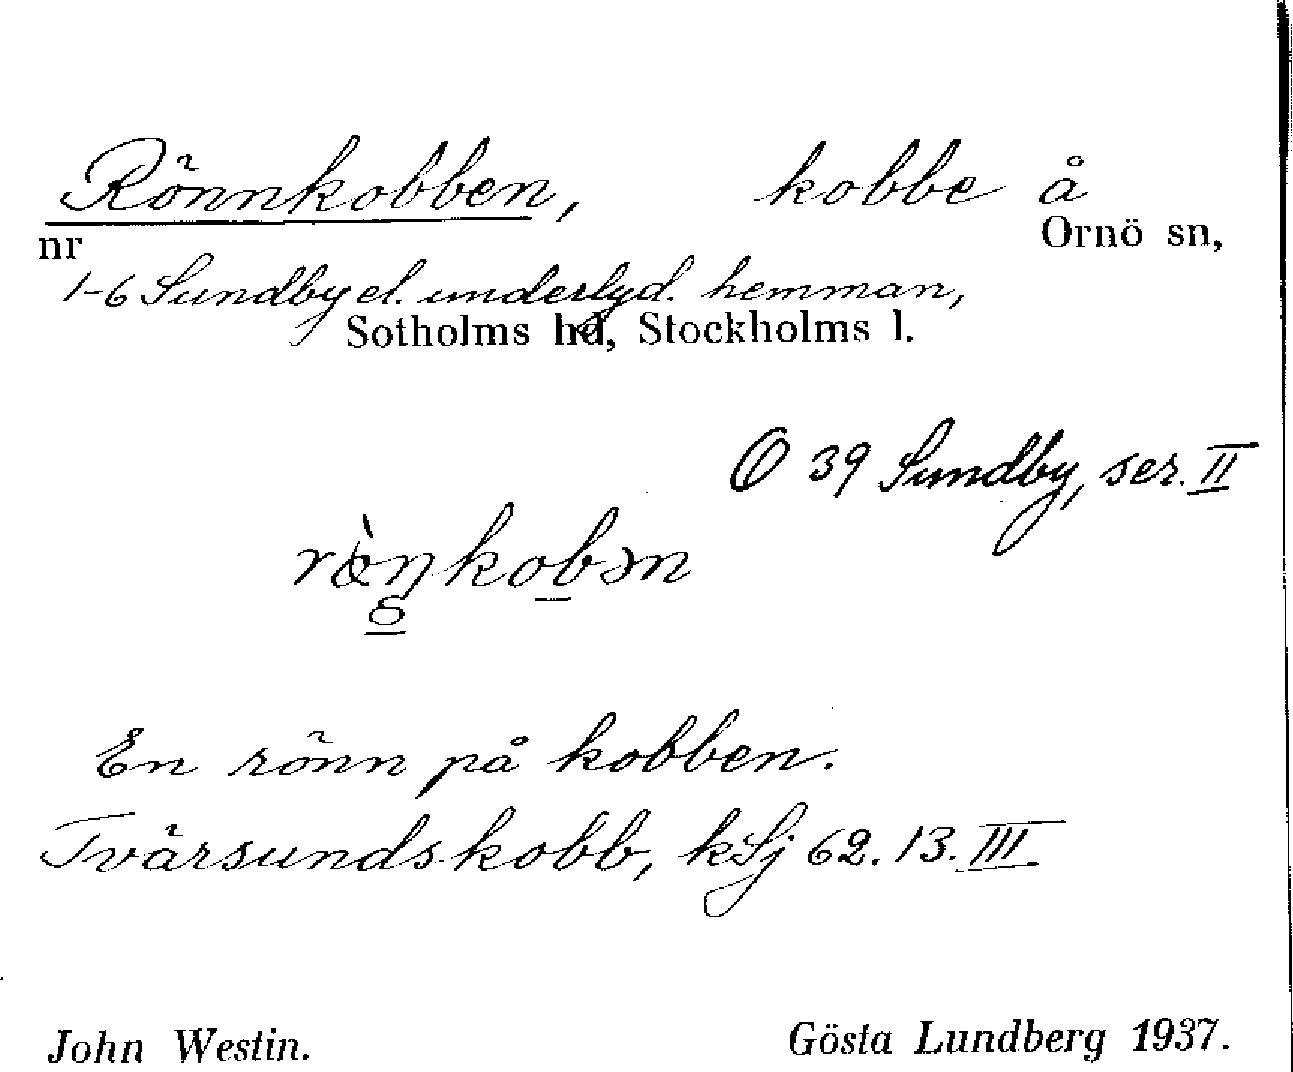 Rönnkobben, kobbe å
nr Ornö sn,
1-6 Sundby el. underlyd. hemman,
Sotholms hd, Stockholms l.
O 39 Sundby, ser. II
rö̀ŋkobən
g
En rönn på kobben.
Tvärsundskobb, kSj 62. 13. III.
John Westin. Gösta Lundberg 1937.